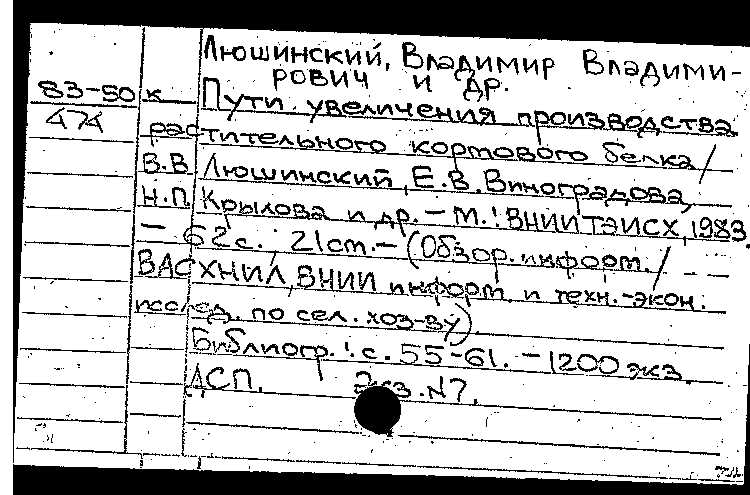 Люшинский, Владимир Владими-
рович и др.
83-50 к Пути увеличения производства
474 растительного кортового белка/
В.В Люшинский, Е.В. Виноградова,
Н.П Крылова и др. – М.: ВНИИТЭИСХ, 1983.
– 62с., 21ст. – (Обзор. информ./
ВАСХНИЛ, ВНИИ информ. и техн.-экон.
исслед. по сел. хоз-ву).
Библиогр.: с. 55-61. – 1200 экз.
ДСП. Экз. №7.